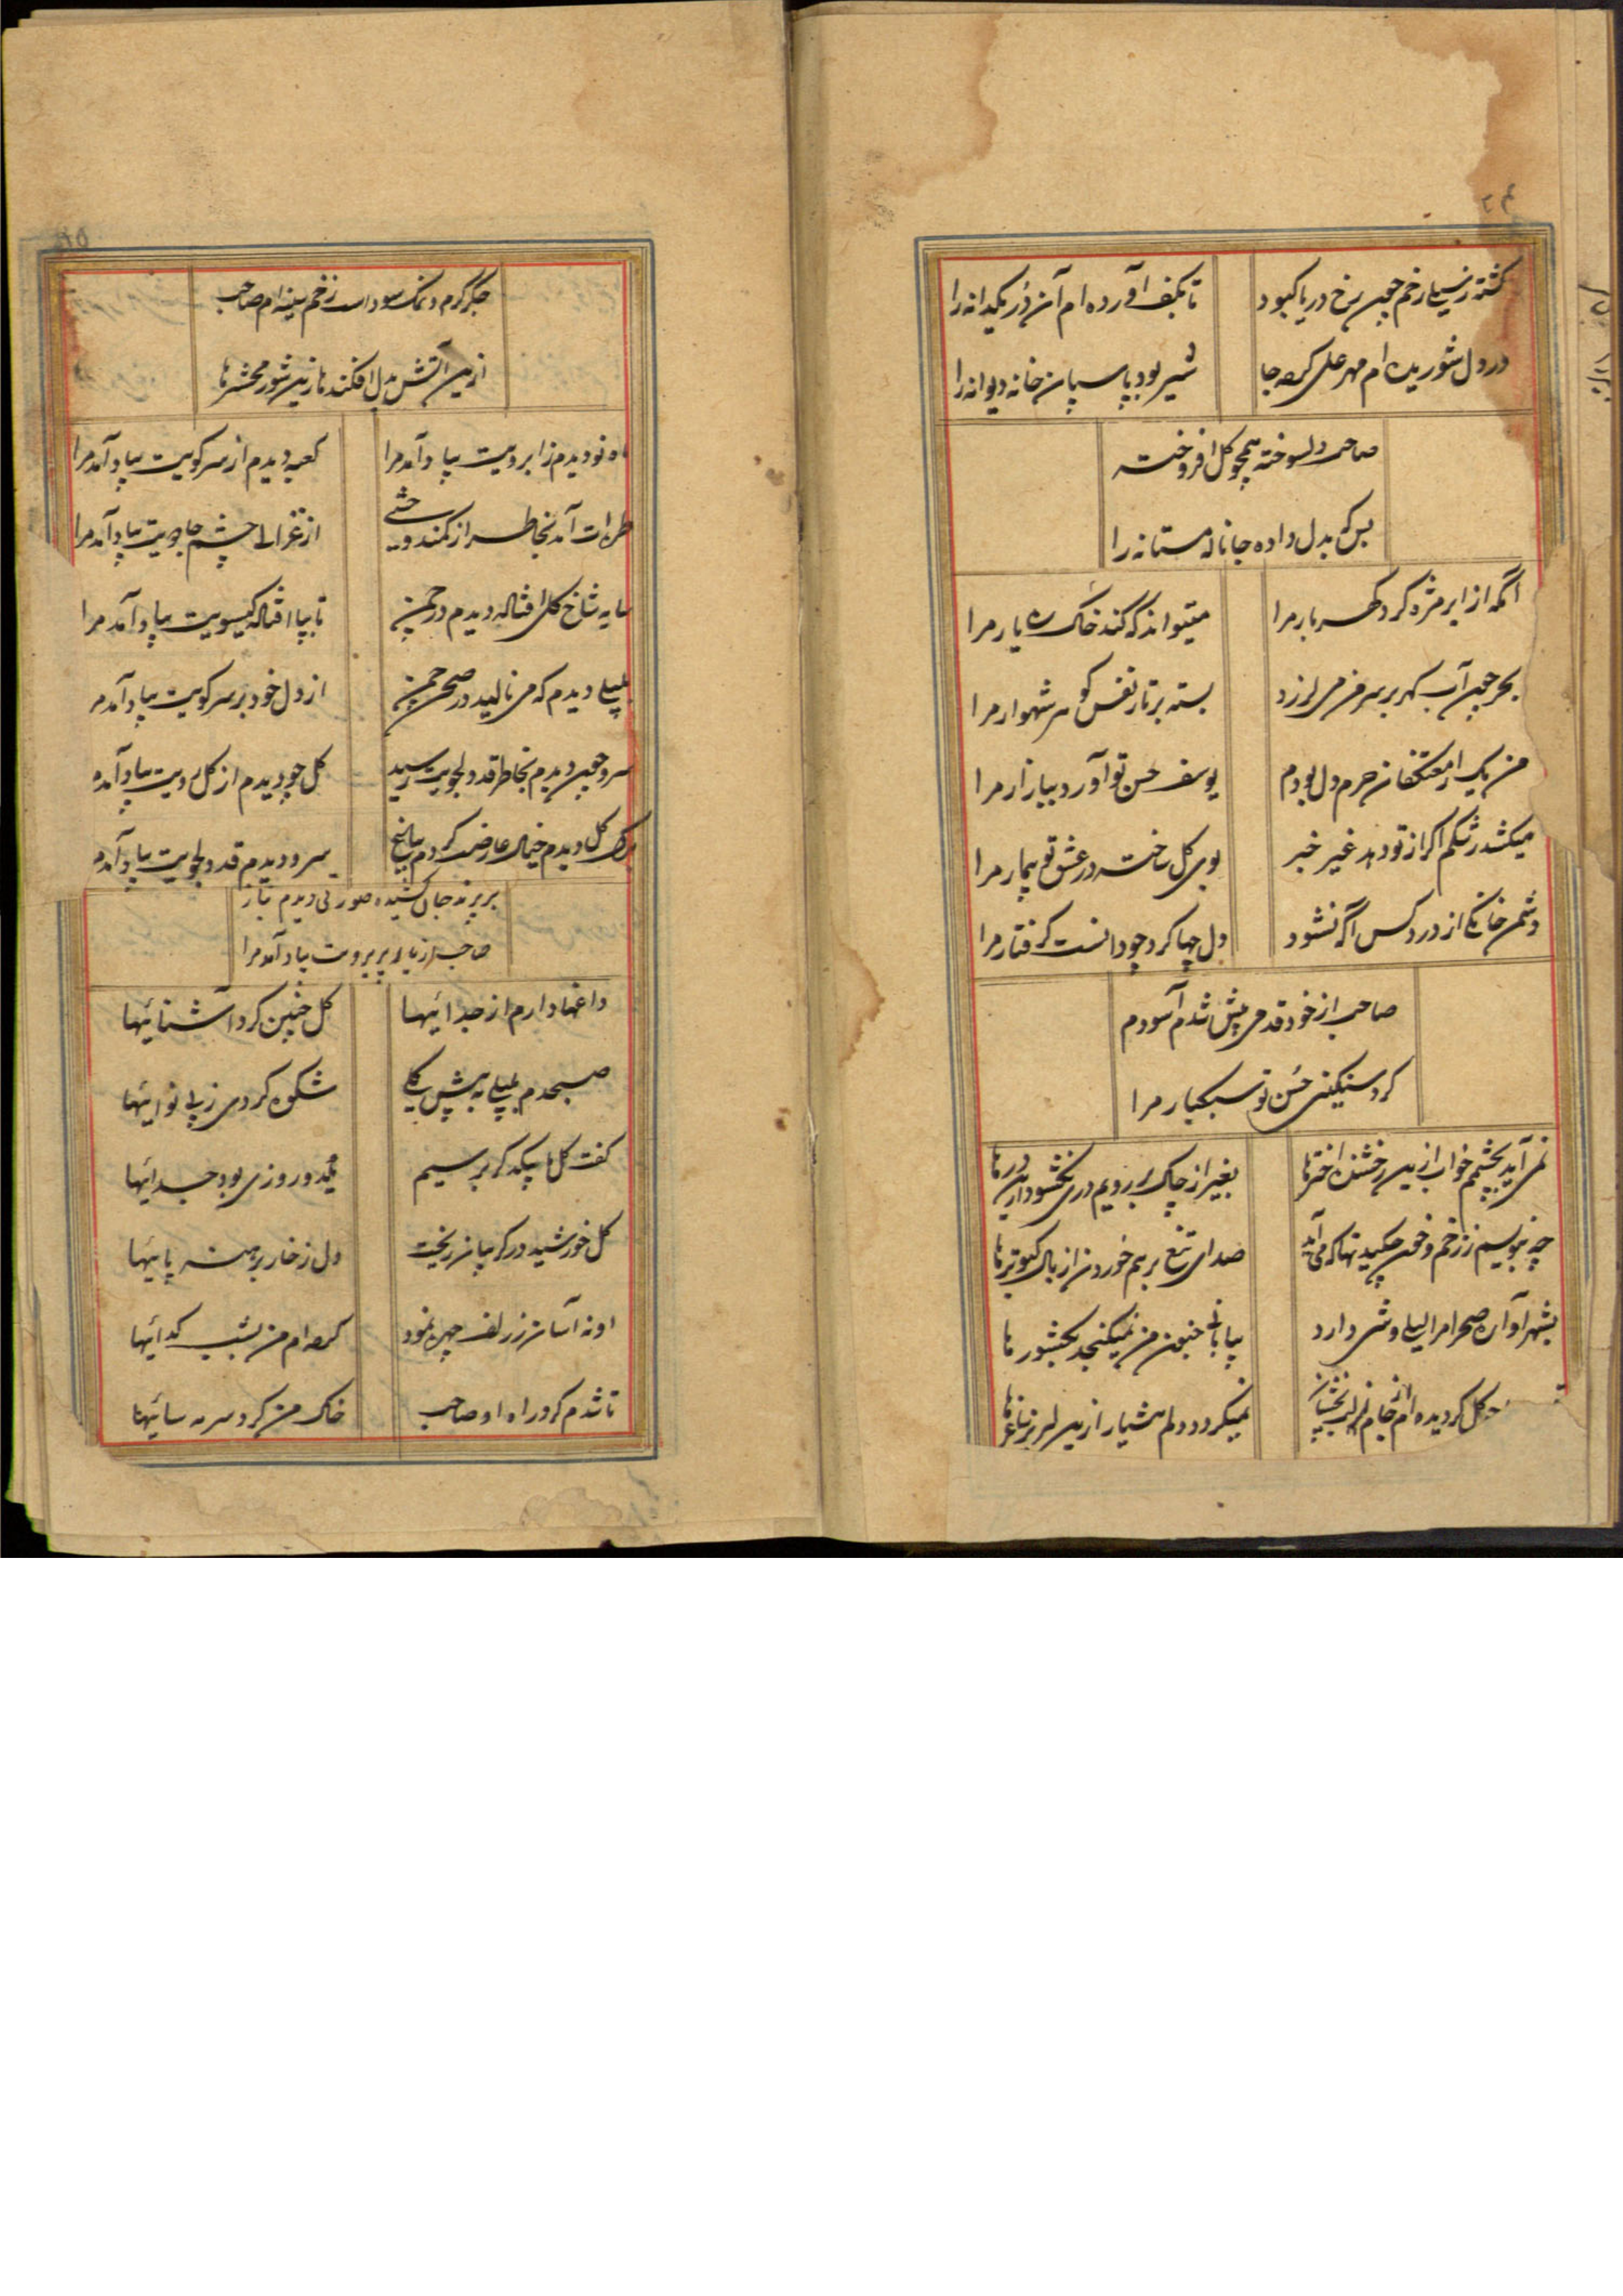 گشته ز سیلی زخم چین رخ دریا کبود
تا بکف آورده ام آن در یکدانه را
در دل شوریده ام مهر علی کرده جا
شیر بود پاسبان خانه دیوانه را
صاحب دلسوخته همچو گل افروخته
بس که بدل داده جا ناله مستانه را
آنکه از ابر مژه کرد گهربار مرا
میتواند که کند خاک ره یار مرا
بحر چین آب گهر بر سر من می لرزد
بسته بر تار نفس گوهر شهوار مرا
من یک از معتکفان حرم دل بودم
یوسف حسن تو آورد ببازار مرا
میکشد رشکم اگر از تو دهد غیر خبر
بوی گل ساخت در عشق تو بیمار مرا
دشمن خانگی از درد کس آگه نشود
دل چها کرد چو دانست گرفتار مرا
صاحب از خود قدمی پیش شدم آسودم
کرد سنگینی حسن تو سبکبار مرا
نمی آید بچشمم خواب ازین رخشنده اخترها
بغیر از چاک بر رویم دری نگشود این درها
چه بنویسم ز زخم و خون چکیدنها که می آید
صدای تیغ بر هم خوردن از بال کبوترها
بشهر آواره صحرا مرا لیلی وشی دارد
بیابانی جنون من نمیگنجد بکشورها
گل گردیده ام از جام
نمیگردد دلم هشیار ازین لبریز ساغرها
جگر گرم و نمک سود است زخم سینه ام صاحب
ازین آتش بدل افکنده نازنین شور محشرها
ماه نو دیدم ز ابرویت بیاد آمد مرا
کعبه دیدم از سر کویت بیاد آمد مرا
طره ات آمد بخاطر از کمند وحشی
از غزالی چشم جادویت بیاد آمد مرا
سایه شاخ گل افتاده دیدم در چمن
تا بپا افتاده گیسویت بیاد آمد مرا
بلبلی دیدم که می نالید در صحن چمن
از دل خود بر سر کویت بیاد آمد مر
سرو چین دیدم بخاطر قد دلجویت رسید
گل چو دیدم از گل رویت بیاد آمد
برگ گل دیدم خیال عارضت کردم بباغ
سرو دیدم قد دلجویت بیاد آمد
بر پرند جان کشیده صورتی دیدم بناز
صاحب از یار پریرویت بیاد آمد مرا
داغها دارم از جدائیها
گل چنین کرد آشنائیها
صبحدم بلبلی به پیش گلی
شکوه کردی ز بی نوائیها
گفت گل تا بیکدگر برسیم
یکدو روزی بود جدائیها
گل خورشید در گریبان ریخت
دل ز خار برهنه پائیها
او نه آسان ز زلف چهره نمود
کرده ام من بشب گدائیها
تا شدم گرد راه او صاحب
خاک من کرد سرمه سائیها